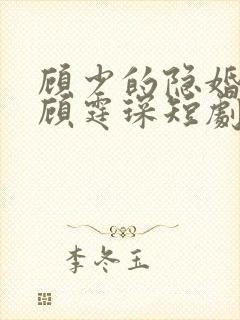 顾少的隐婚
顾霆琛短劇
李冬玉